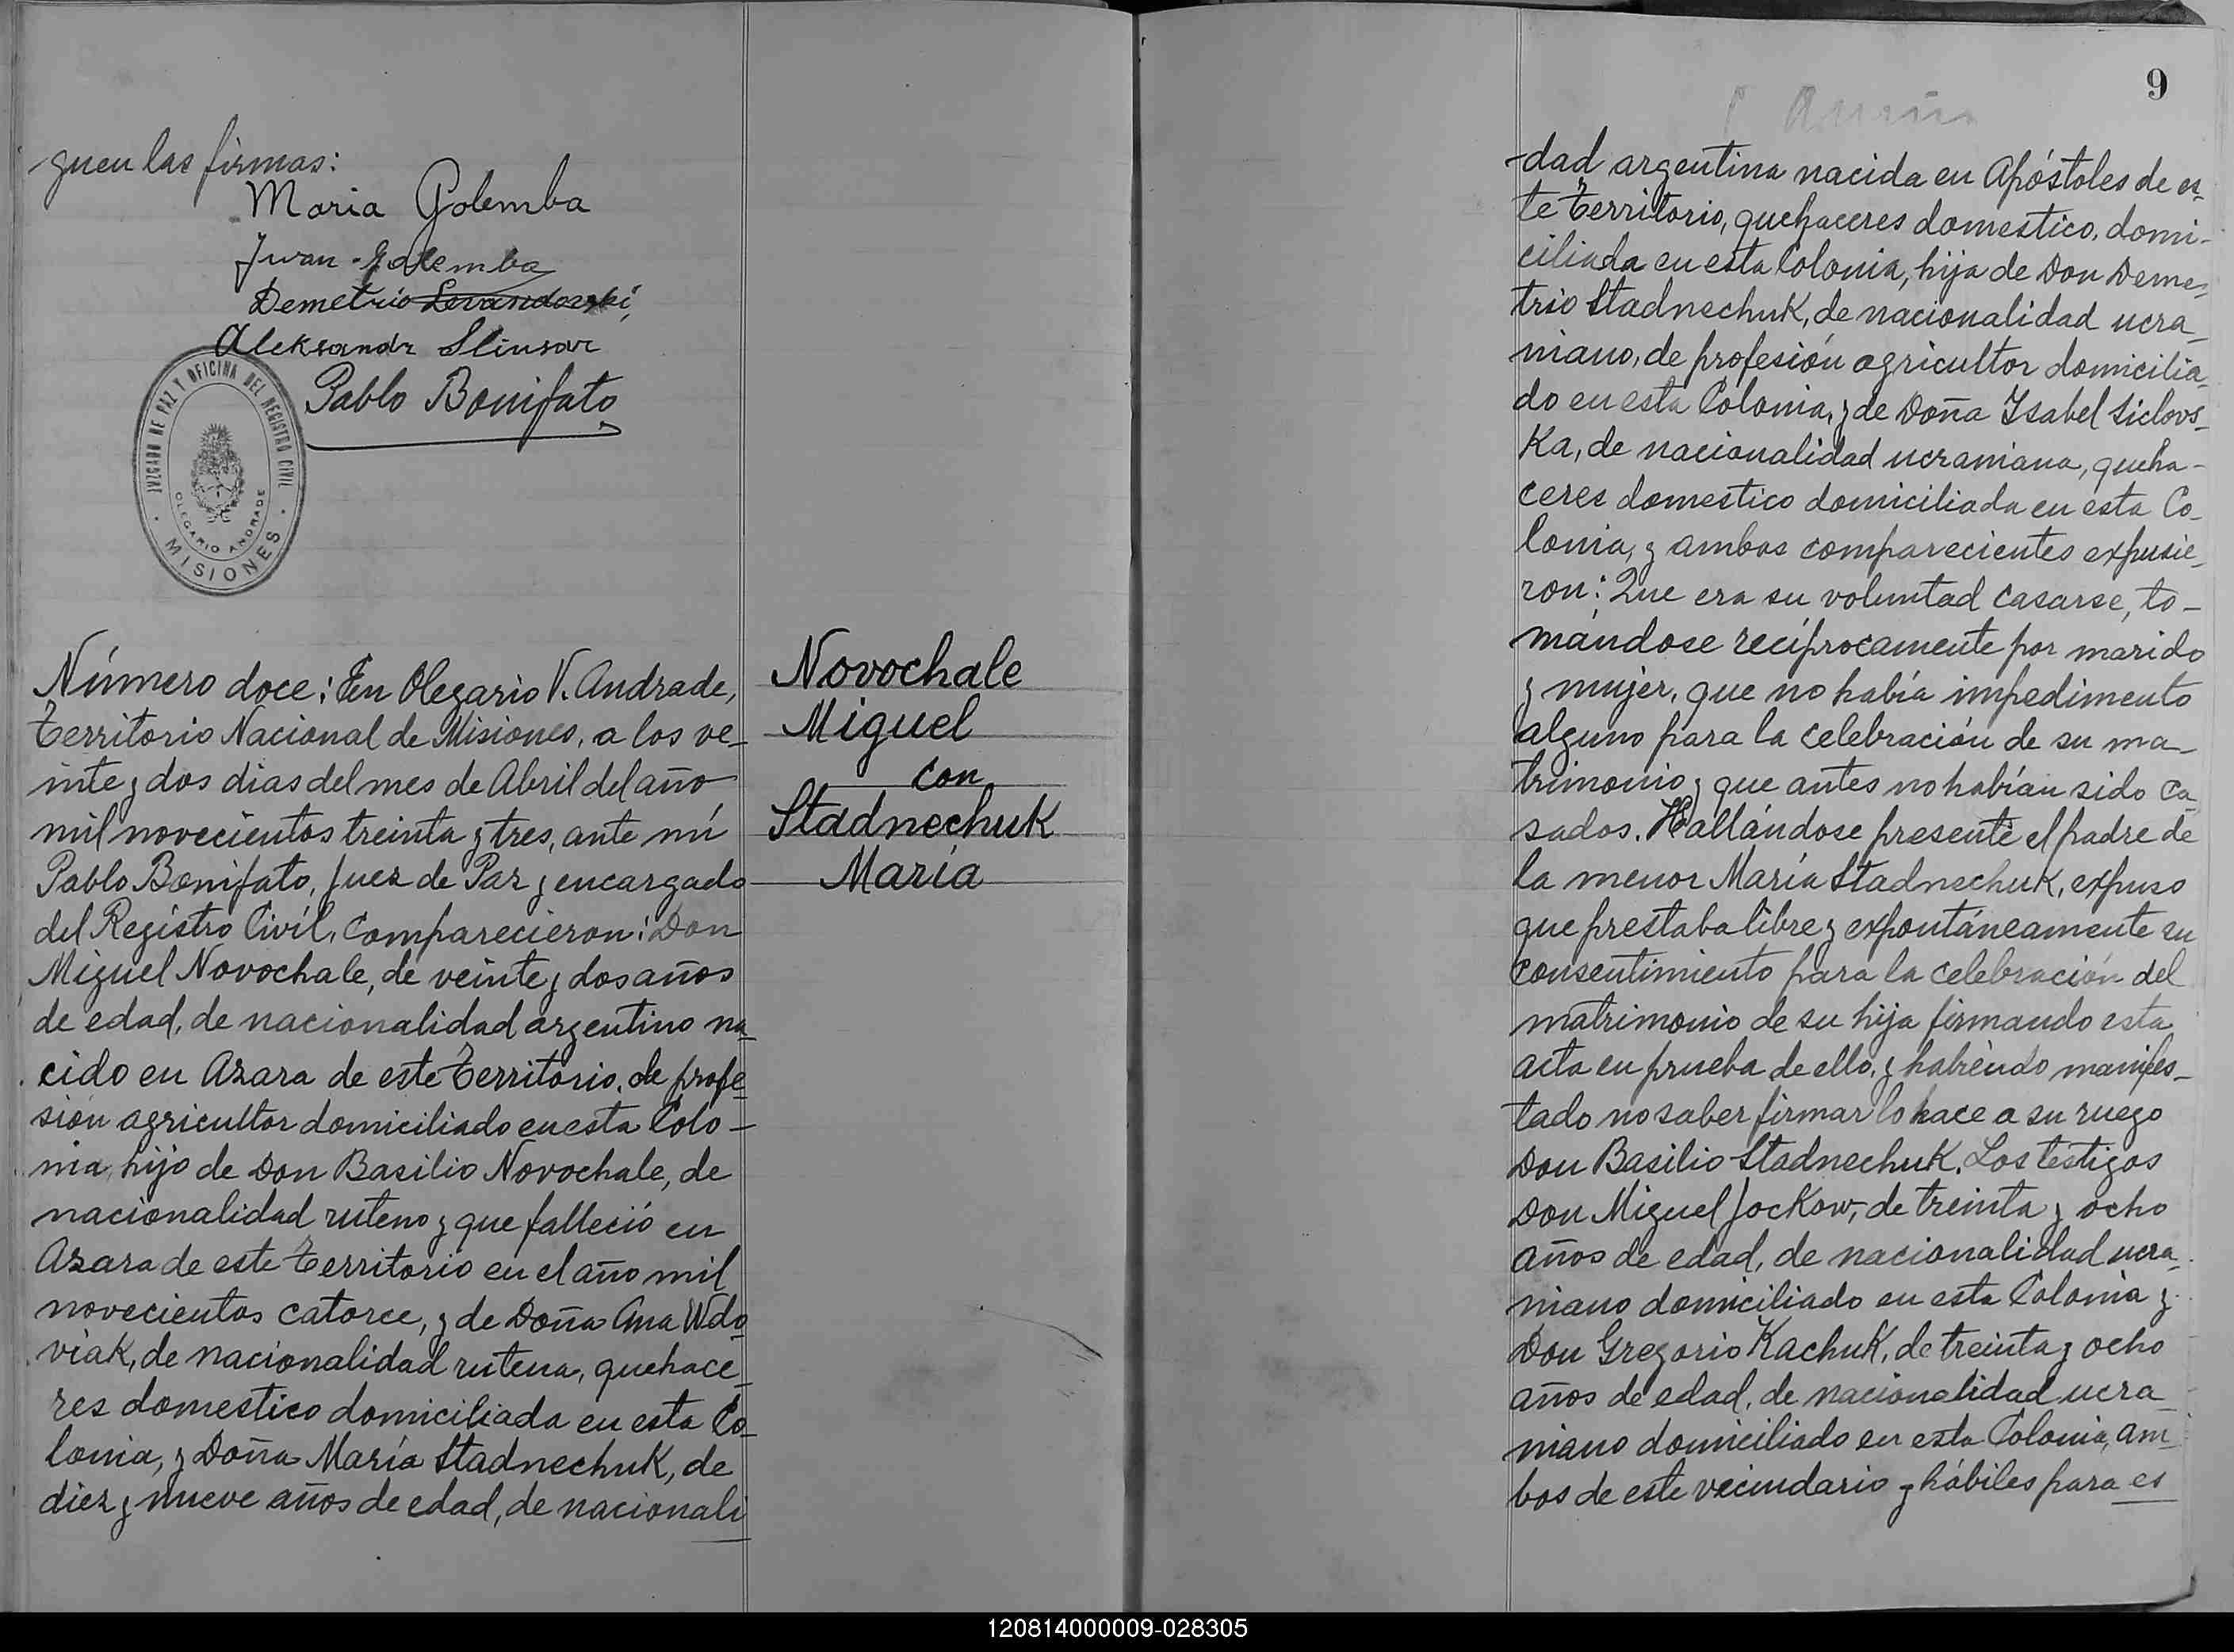 guen las firmas:
Maria Golemba
Jwan Golemba
Demetrio Levandoski,
Aleksandr Slinsar
Pablo Bonifato
JUZGADO DE PAZ Y OFICINA DEL REGISTRO CIVIL
OLEGARIO ANDRADE
· MISIONES ·
Número doce: En Olegario V. Andrade,
Territorio Nacional de Misiones, a los ve-
inte y dos dias del mes de Abril del año
mil novecientos treinta y tres, ante mí
Pablo Bonifato, Juez de Paz y encargado
del Registro Civil, Comparecieron: Don
Miguel Novochale, de veinte y dos años
de edad, de nacionalidad argentino na-
cido en Azara de este Territorio, de profe-
sión agricultor domiciliado en esta Colo-
nia, hijo de Don Basilio Novochale, de
nacionalidad ruteno y que falleció en
Azara de este Territorio en el año mil
novecientos catorce, y de Doña Ana Wdo-
viak, de nacionalidad rutena, quehace-
res domestico domiciliada en esta Co-
lonia, y Doña María Stadnechuk, de
diez y nueve años de edad, de nacionali
Novochale
Miguel
con
Stadnechuk
María
9
-dad argentina nacida en Apóstoles de es-
te Territorio, quehaceres domestico, domi-
ciliada en esta Colonia, hija de Don Deme-
trio Stadnechuk, de nacionalidad ucra-
niano, de profesión agricultor domicilia-
do en esta Colonia, y de Doña Ysabel Siclovs-
ka, de nacionalidad ucraniana, queha-
ceres domestico domiciliada en esta Co-
lonia, y ambos comparecientes expusie-
ron: Que era su voluntad casarse, to-
mándose recíprocamente por marido
y mujer, que no había impedimento
alguno para la celebración de su ma-
trimonio y que antes no habían sido ca-
sados. Hallándose presente el padre de
la menor María Stadnechuk, expuso
que prestaba libre y expontáneamente su
consentimiento para la celebración del
matrimonio de su hija firmando esta
acta en prueba de ello, y habiendo manifes-
tado no saber firmar lo hace a su ruego
Don Basilio Stadnechuk. Los testigos
Don Miguel Jockow, de treinta y ocho
años de edad, de nacionalidad ucra-
niano domiciliado en esta Colonia y
Don Gregorio Kachuk, de treinta y ocho
años de edad, de nacionalidad ucra-
niano domiciliado en esta Colonia, am-
bos de este vecindario y hábiles para es
120814000009-028305